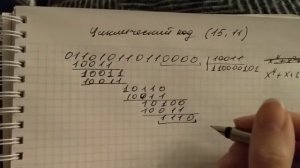 Циклический код (15, 11)
011010110110000 | 10011
10011 | 11000101
10011
10011
10110
10011
10100
10011
1110
x⁴+x+1